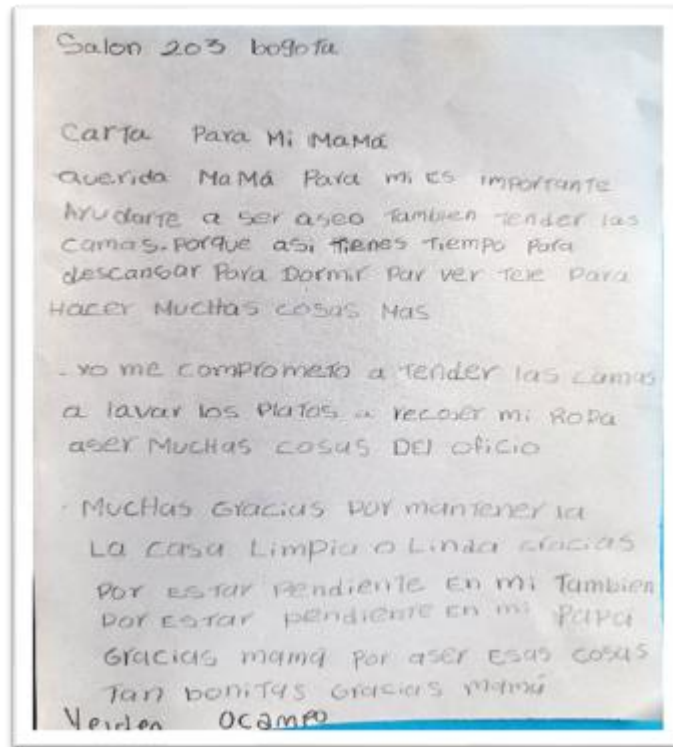 Salon 203 bogota
Carta Para Mi MaMá
querida MaMá Para mi es importante
Ayudarte a ser aseo Tambien Tender las
camas. Porque asi tienes Tiempo para
descansar Para Dormir Par ver Tele Para
Hacer MucHas cosas Mas
. yo me comprometo a Tender las camas
a lavar los Platos a recoser mi Ropa
aser MucHas cosas DEl oficio
. MucHas Gracias por mantener la
La casa Limpia o Linda Gracias
Por ESTar Pendiente En mi Tambien
Por ESTar pendiente En mi Papa
Gracias mamá Por aser Esas cosas
Tan boniTas Gracias mamá
Ocampo